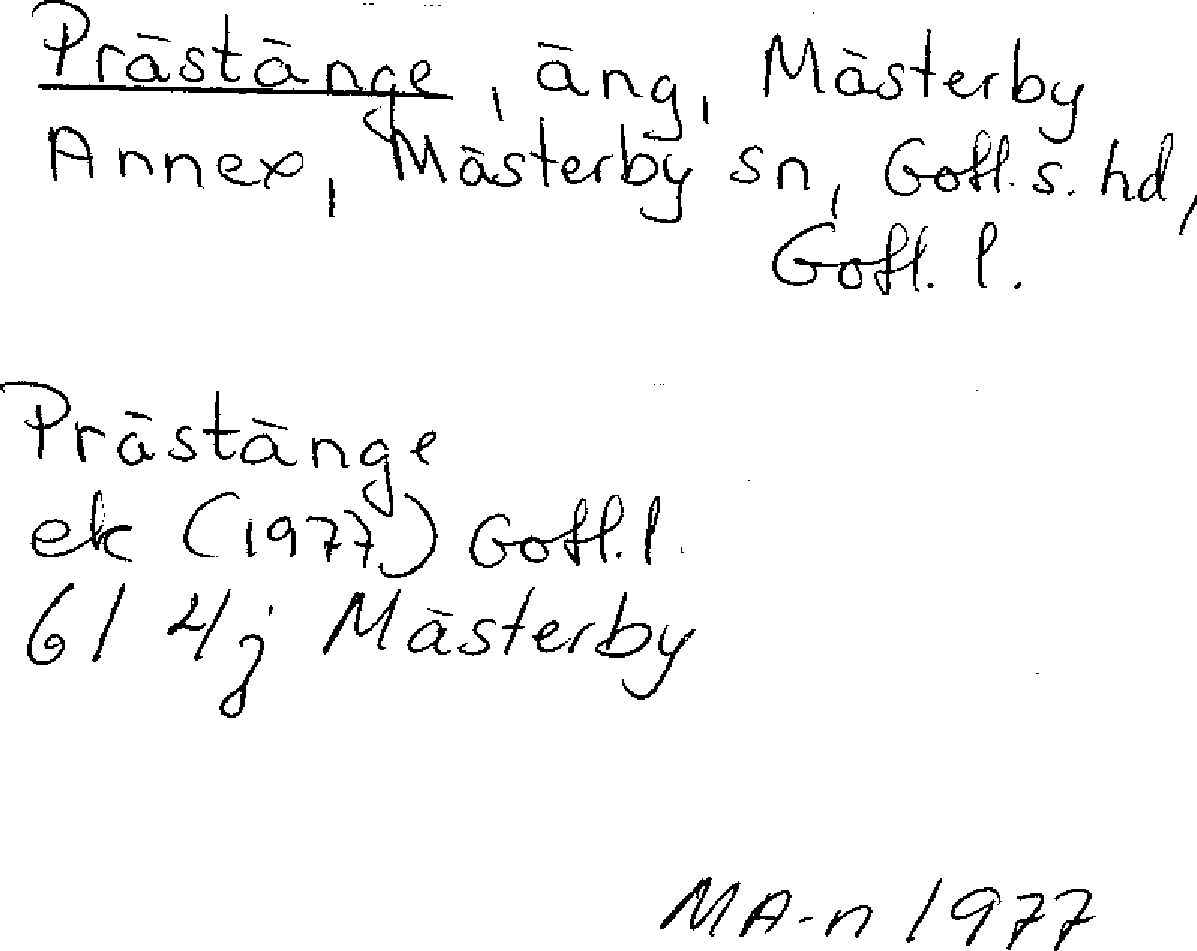 Prästänge, äng, Mästerby
Annex, Mästerby sn, Gotl. s. hd,
Gotl. l.
Prästänge
ek (1977) Gotl. l.
6I 4j Mästerby
MA-n 1977